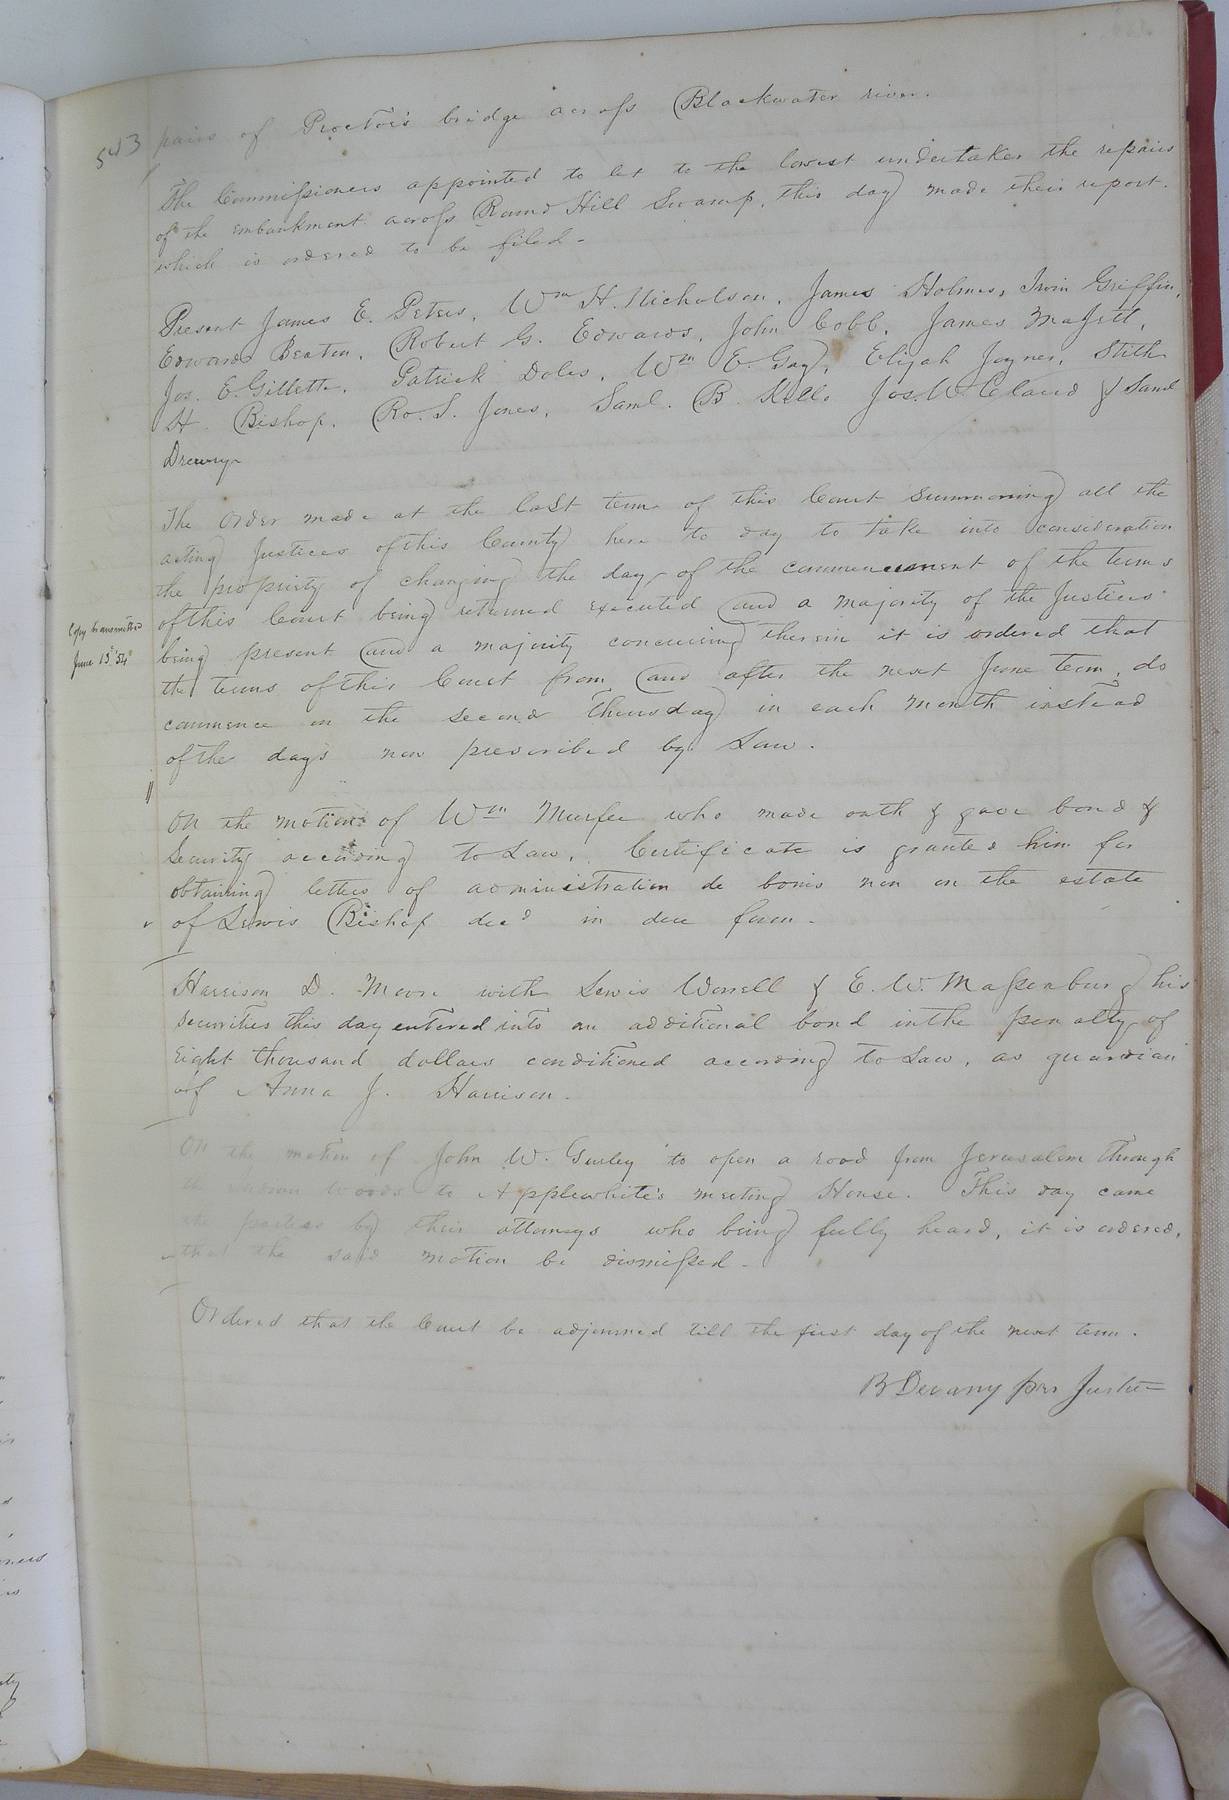 543 pairs of Proctor's bridge across Blackwater river.
The Commissioners appointed to let to the lowest undertaker the repairs
of the embankment across Round Hill Swamp, this day made their report.
which is ordered to be filed -
Present James E. Peters, Wm H. Nicholson, James Holmes, Irvin Griffin,
Edward Beaton, Robert G. Edwards, John Cobb, James Majett,
Jos. E. Gillette, Patrick Doles, Wm E. Gay, Elijah Joyner, Stith
H. Bishop, Ro. S. Jones, Saml. B. Kello Jos. W. Claud & Saml
Drewry
The Order made at the last term of this Court summoning all the
acting Justices of this County here to day to take into consideration
the propriety of changing the day of the commencement of the terms
of this Court being returned executed and a majority of the Justices
Copy transmitted
June 15th 54
being present and a majority concurring therein it is ordered that
the terms of this Court from and after the next June Term, do
commence on the second Thursday in each month instead
of the days now prescribed by Law.
On the motion of Wm Murfee who made oath & gave bond &
Security according to Law, Certificate is granted him for
obtaining letters of administration de bonis non on the estate
of Lewis Bishop decd in due form -
Harrison D. Moore with Lewis Worrell & E. W. Massenburg his
securities this day entered into an additional bond in the penalty of
Eight thousand dollars conditioned according to Law, as guardian
of Anna J. Harrison.
On the motion of John W. Gurley to open a road from Jerusalem through
the Indian Woods to Applewhite's meeting House. This day came
the parties by their attorneys who being fully heard, it is ordered,
that the said motion be dismissed -
Ordered that the Court be adjourned till the first day of the next term.
B Devany pres Justice